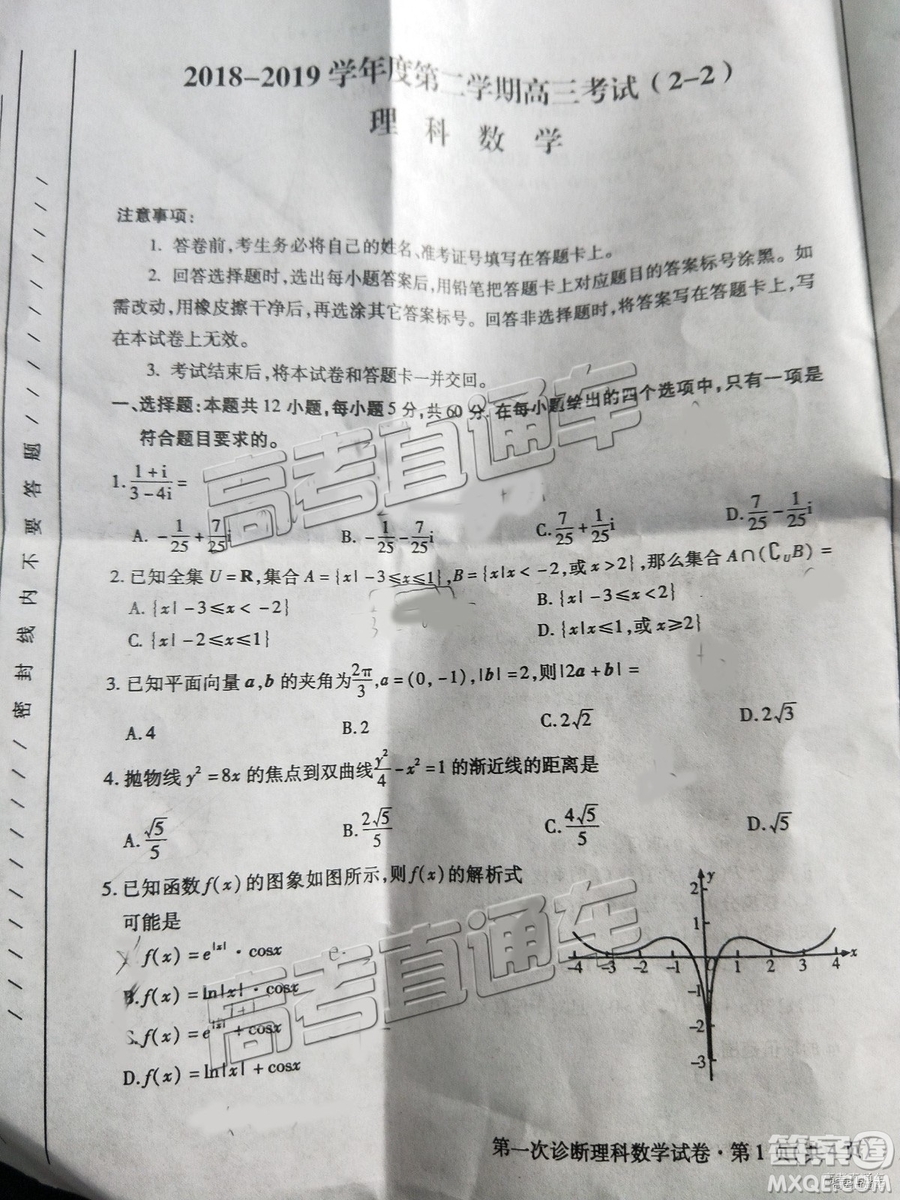 2018-2019学年度第二学期高三考试(2-2)
理科数学
注意事项:
1. 答卷前,考生务必将自己的姓名、准考证号填写在答题卡上。
2. 回答选择题时,选出每小题答案后,用铅笔把答题卡上对应题目的答案标号涂黑。如
需改动,用橡皮擦干净后,再选涂其它答案标号。回答非选择题时,将答案写在答题卡上,写
在本试卷上无效。
3. 考试结束后,将本试卷和答题卡一并交回。
一、选择题:本题共12小题,每小题5分,共60分.在每小题给出的四个选项中,只有一项是
符合题目要求的。
1. (1+i)/(3-4i)=
A. -1/25+7/25i B. -1/25-7/25i C. 7/25+1/25i D. 7/25-1/25i
2. 已知全集U=R,集合A={x|-3≤x≤1},B={x|x<-2,或x>2},那么集合A∩(∁UB)=
A. {x|-3≤x<-2} B. {x|-3≤x<2}
C. {x|-2≤x≤1} D. {x|x≤1,或x≥2}
3. 已知平面向量a,b的夹角为2π/3,a=(0,-1),|b|=2,则|2a+b|=
A.4 B.2 C.2√2 D.2√3
4. 抛物线y²=8x的焦点到双曲线y²/4-x²=1的渐近线的距离是
A.√5/5 B.2√5/5 C.4√5/5 D.√5
5. 已知函数f(x)的图象如图所示,则f(x)的解析式
可能是
f(x)=e^|x|·cosx
B.f(x)=ln|x|·cosx
C.f(x)=e^|x|+cosx
D.f(x)=ln|x|+cosx
y
2
1
-4 -3 -2 -1 1 2 3 4 x
-2
-3
第一次诊断理科数学试卷·第1页(共4页)
密封线内不要答题
高考直通车
高考直通车
答案圈
MXQE.COM